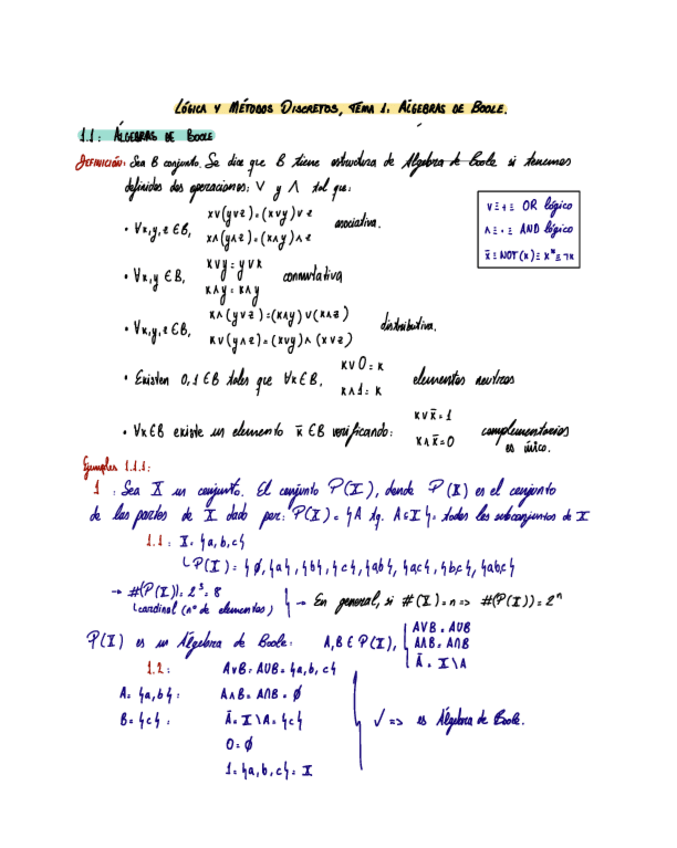 LÓGICA Y MÉTODOS DISCRETOS, TEMA 1. ÁLGEBRAS DE BOOLE.
1.1: ÁLGEBRAS DE BOOLE
DEFINICIÓN: Sea B conjunto. Se dice que B tiene estructura de Álgebra de Boole si tenemos
definidos dos operaciones: ∨ y ∧ tal que:
∨≡+≡ OR lógico
∧≡·≡ AND lógico
x̄≡NOT(x)≡x*≡¬x
• ∀x,y,z∈B, x∨(y∨z)=(x∨y)∨z
x∧(y∧z)=(x∧y)∧z asociativa.
• ∀x,y∈B, x∨y=y∨x
x∧y=x∧y conmutativa
• ∀x,y,z∈B, x∧(y∨z)=(x∧y)∨(x∧z)
x∨(y∧z)=(x∨y)∧(x∨z) distributiva.
• Existen 0,1∈B tales que ∀x∈B, x∨0=x
x∧1=x elementos neutros
• ∀x∈B existe un elemento x̄∈B verificando: x∨x̄=1
x∧x̄=0 complementarios
es único.
Ejemplos 1.1.1:
1: Sea X un conjunto. El conjunto P(X), donde P(X) es el conjunto
de las partes de X dado por: P(X)={A tq. A⊆X}= todos los subconjuntos de X
1.1: X={a,b,c}
↳P(X)={∅,{a},{b},{c},{ab},{ac},{bc},{abc}}
→ #(P(X))=2³=8
↳cardinal (nº de elementos) → En general, si #(X)=n => #(P(X))=2ⁿ
P(X) es un Álgebra de Boole: A,B∈P(X), A∨B=A∪B
A∧B=A∩B
Ā=X\A
1.2: A∨B=A∪B={a,b,c}
A={a,b}: A∧B=A∩B=∅
B={c}: Ā=X\A={c} ✓ => es Álgebra de Boole.
0=∅
1={a,b,c}=X